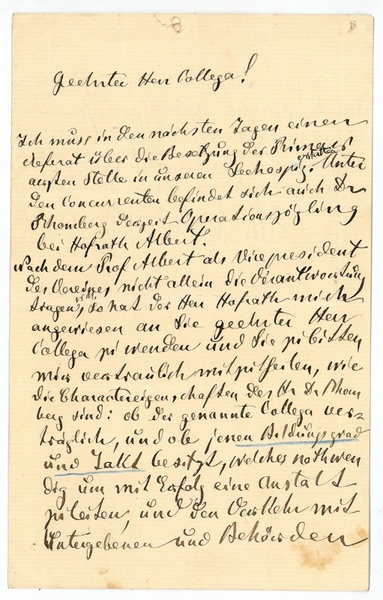 Geehrter Herr Collega!
Ich muss in den nächsten Tagen einen
Referat über die Besetzung der Primar
arzten Stelle in unseren Seehospiz erstatten. Unter
den Concurrenten befindet sich auch Dr
Rhomberg derzeit Operationszögling
bei Hofrath Albert.
Nach dem Prof Albert als Vicepresident
des Vereines nicht allein die Verantwortung
tragen will, so hat der Herr Hofrath mich
angewiesen an Sie geehrter Herr
Collega zu wenden und Sie zu bitten
mir vertraulich mitzutheilen, wie
die Charactereigenschaften des H. Dr Rhom
berg sind: ob der genannte Collega ver-
träglich, und ob er jenen Bildungsgrad
und Takt besitzt, welches nothwen
dig um mit Erfolg eine Anstalt
zu leiten, und den Verkehr mit
Untergebenen und Behörden